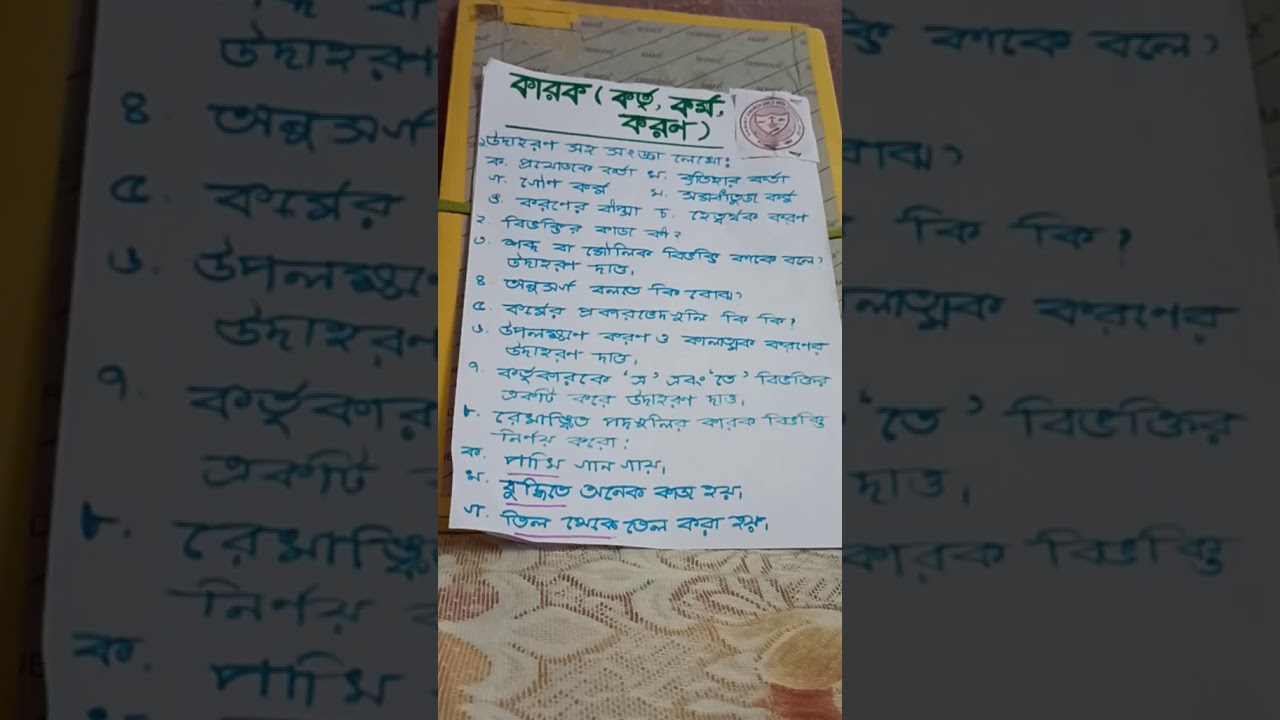 কারক ( কর্তৃ, কর্ম,
করণ )
১. উদাহরণ সহ সংজ্ঞা লেখো:
ক. প্রযোজক কর্তা খ. ব্যতিহার কর্তা
গ. গৌণ কর্ম ঘ. সমধাতুজ কর্ম
ঙ. করণের বীপ্সা চ. হেত্বর্থক করণ
২. বিভক্তির কাজ কী?
৩. শব্দ বা মৌলিক বিভক্তি কাকে বলে?
উদাহরণ দাও।
৪. অনুসর্গ বলতে কি বোঝ?
৫. কর্মের প্রকারভেদগুলি কি কি?
৬. উপলক্ষণে করণ ও কালাত্মক করণের
উদাহরণ দাও।
৭. কর্তৃকারকে 'এ' এবং 'তে' বিভক্তির
একটি করে উদাহরণ দাও।
৮. রেখাঙ্কিত পদগুলির কারক বিভক্তি
নির্ণয় করো:
ক. পাখি গান গায়।
খ. বুদ্ধিতে অনেক কাজ হয়।
গ. তিল থেকে তেল করা হয়।